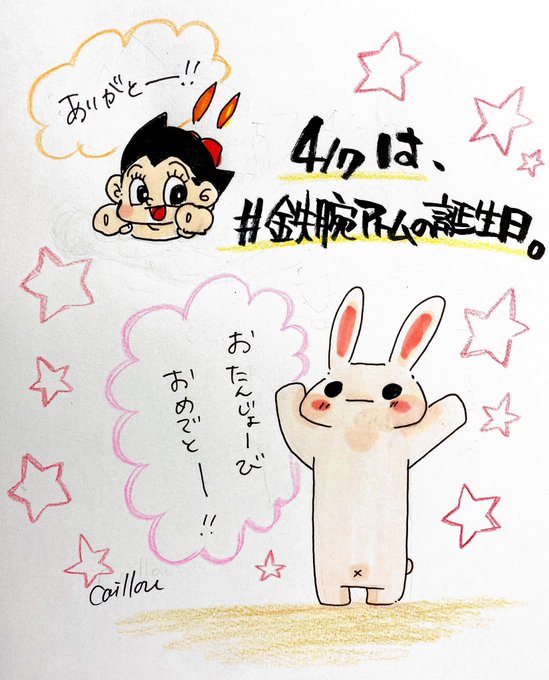 ありがとー!!
4/7は、
#鉄腕アトムの誕生日。
おたんじょーび
おめでとー!!
caillou